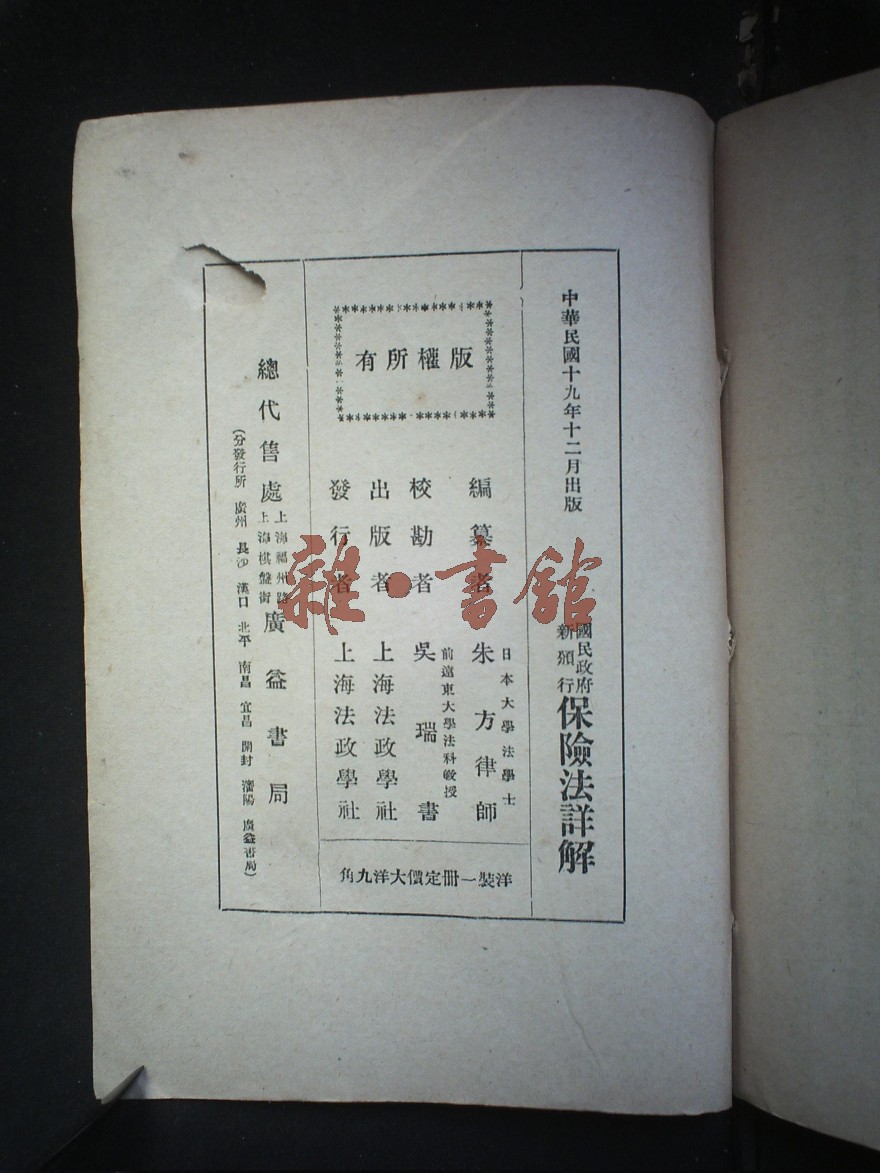 中華民國十九年十二月出版
國民政府
新頒行
保險法詳解
版權所有
編纂者
日本大學法學士
朱方律師
校勘者
前遠東大學法科教授
吳瑞書
出版者 上海法政學社
發行者 上海法政學社
洋裝一冊定價大洋九角
總代售處
上海福州路
上海棋盤街
廣益書局
(分發行所 廣州 長沙 漢口 北平 南昌 宜昌 開封 瀋陽 廣益書局)
雜·書館